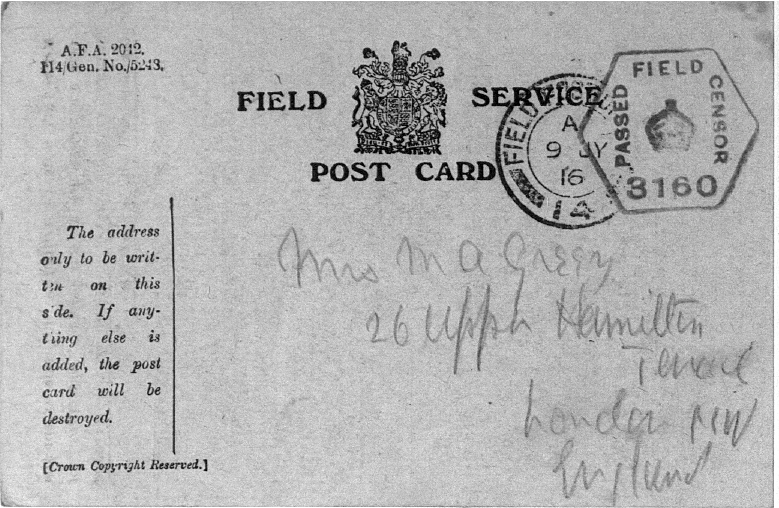 A.F.A. 2042.
114/Gen. No./5243.
FIELD SERVICE
POST CARD
FIELD
A
9 JY
16
14
PASSED FIELD CENSOR
3160
The address
only to be writ-
ten on this
side. If any-
thing else is
added, the post
card will be
destroyed.
[Crown Copyright Reserved.]
Mrs M A Greey
26 Upper Hamilton
Terrace
London NW
England